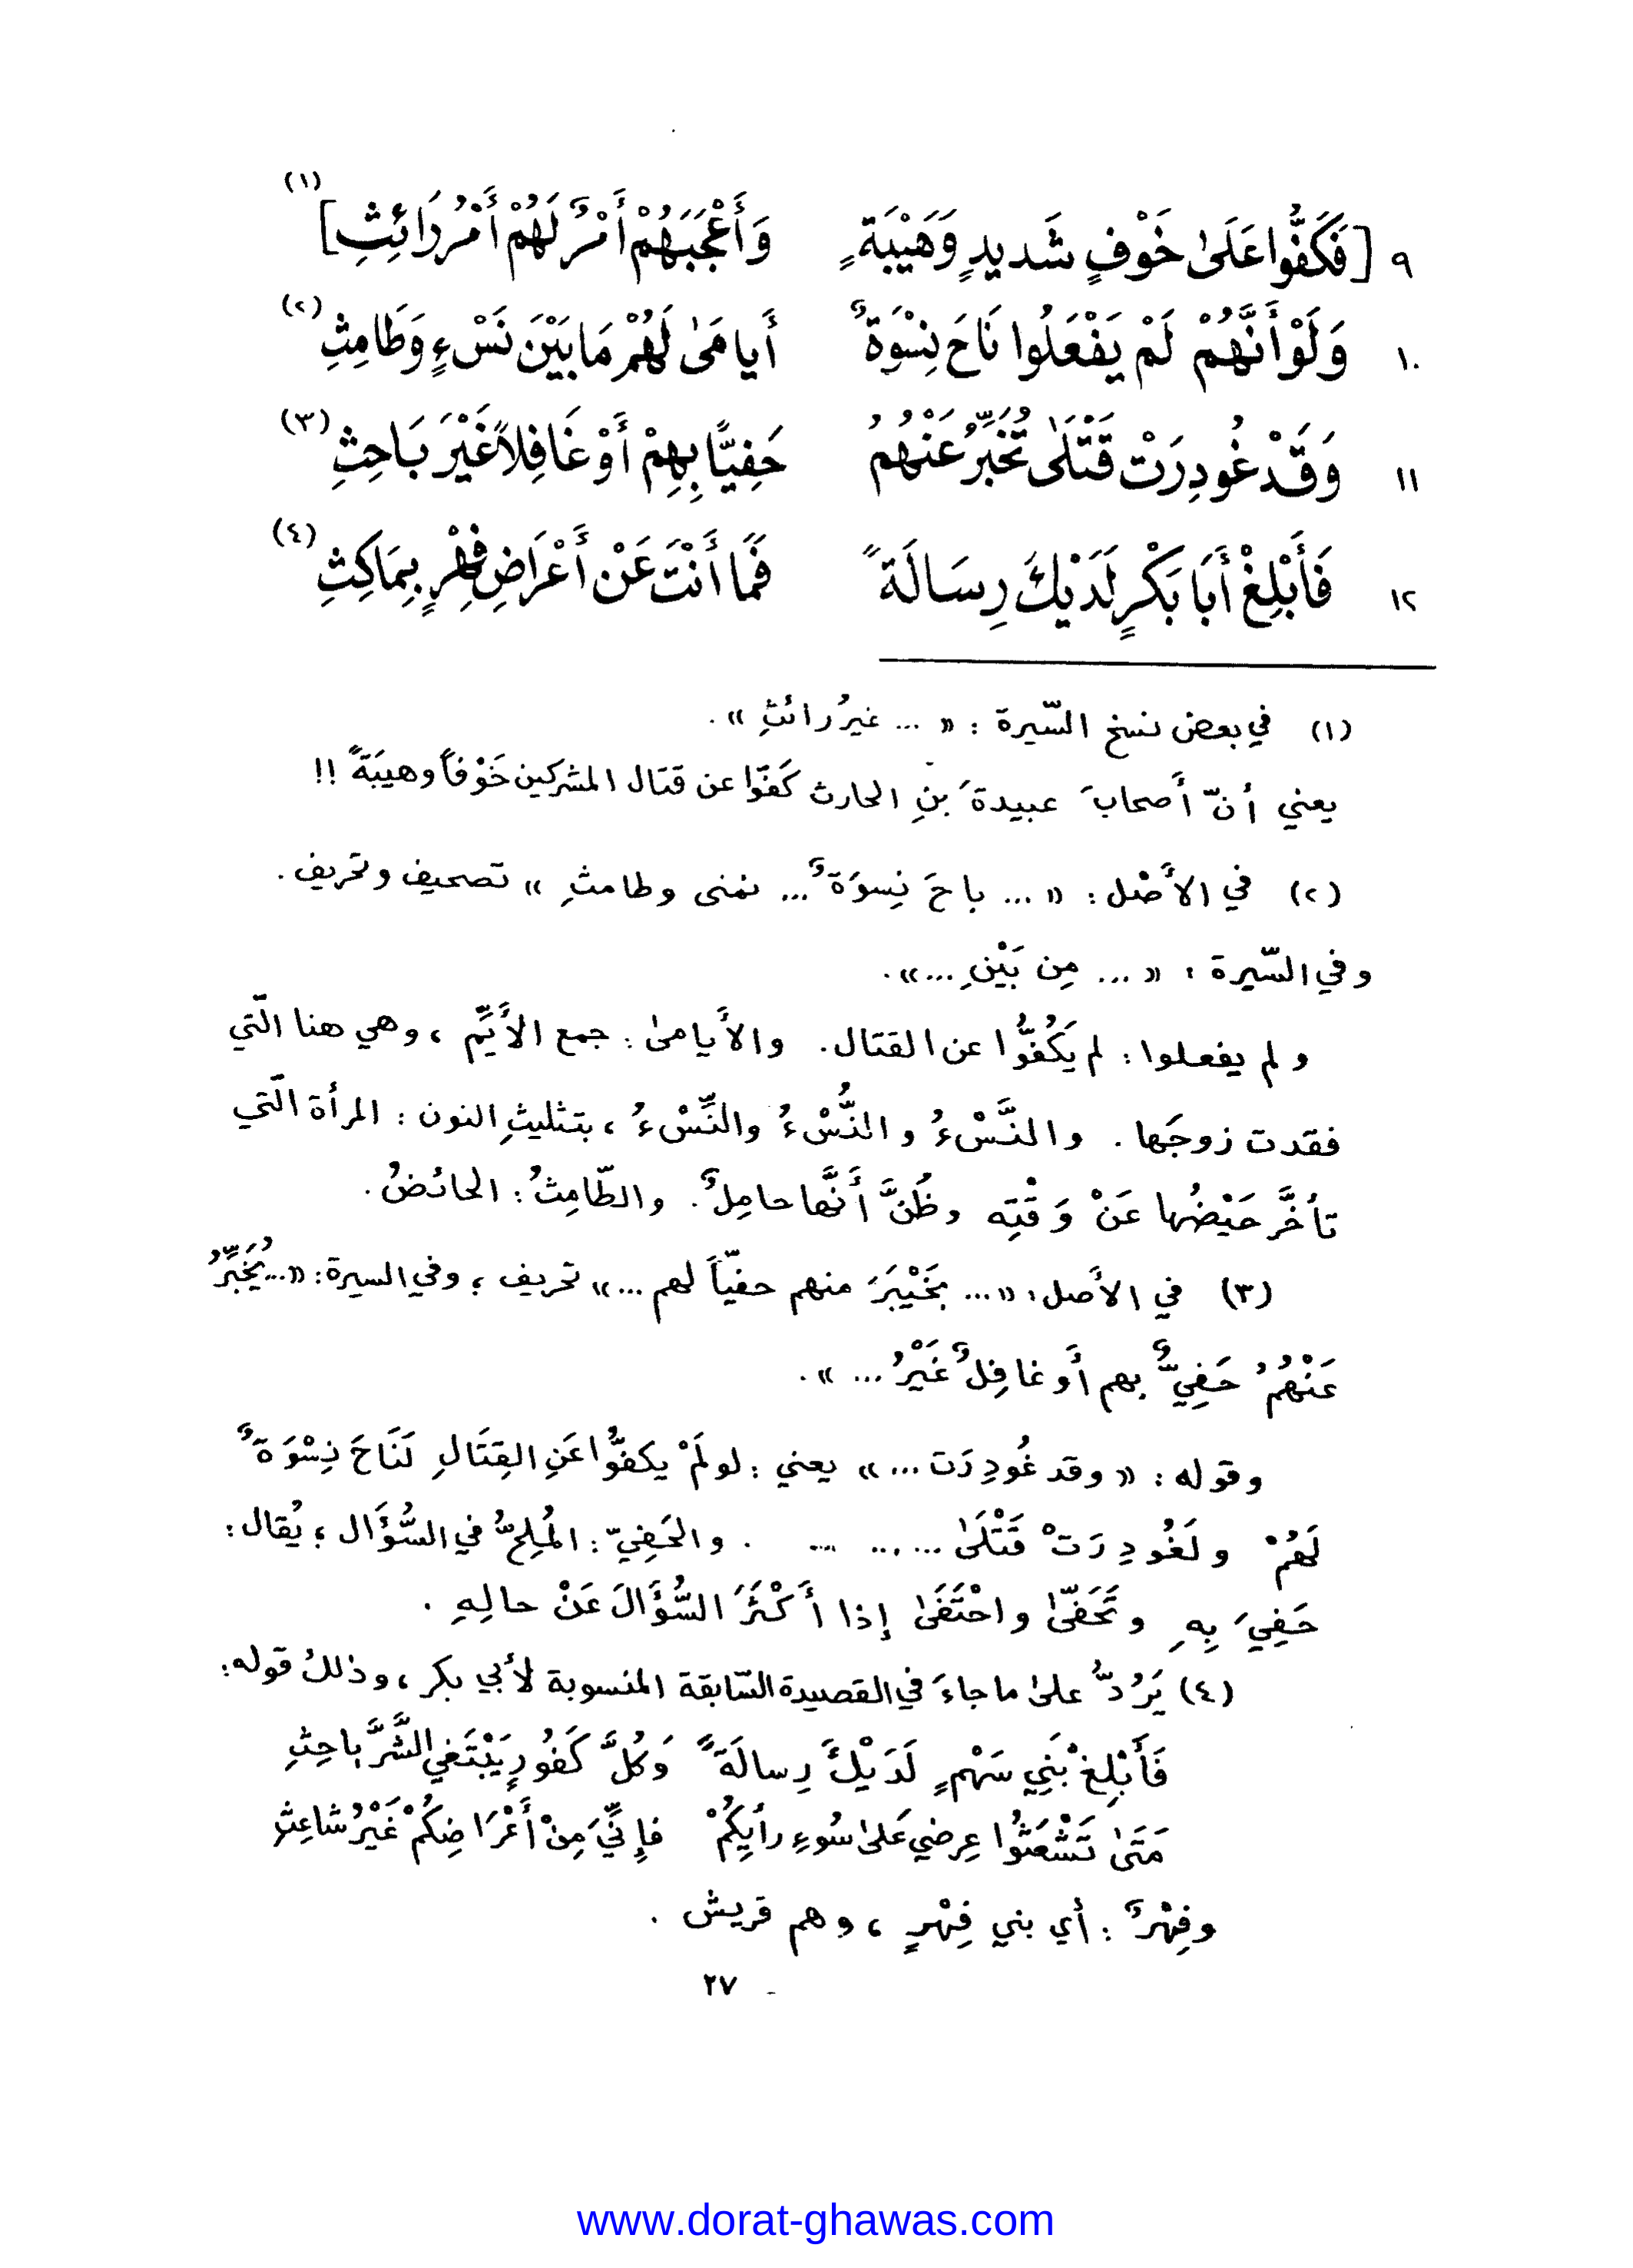 ٩ [فَكَفُّوا عَلَىٰ خَوْفٍ شَديدٍ وَهَيْبَةٍ وَأَعْجَبَهُمْ أَمْرٌ لَهُمْ أَمْرُ رَائِثِ] (١)
١٠ وَلَوْ أَنَّهُمْ لَمْ يَفْعَلُوا نَاحَ نِسْوَةٌ أَيامَىٰ لَهُمْ مَا بَيْنَ نَسْءٍ وَطَامِثِ (٢)
١١ وَقَدْ غُودِرَتْ قَتْلَىٰ تُخَبِّرُ عَنْهُمُ حَفِيًّا بِهِمْ أَوْ غَافِلاً غَيْرَ بَاحِثِ (٣)
١٢ فَأَبْلِغْ أَبَا بَكْرٍ لَدَيْكَ رِسَالَةً فَمَا أَنْتَ عَنْ أَعْرَاضِ فِهْرٍ بِمَاكِثِ (٤)
(١) في بعض نسخ السّيرة : « ... غيرُ رائثِ » .
يعني أنّ أصحابَ عبيدةَ بنِ الحارث كَفّوا عن قتال المشركين خَوْفاً وهيبَةً !!
(٢) في الأَصْل : « ... باحَ نِسوَةٌ ... نمنى وطامثِ » تصحيف وتحريف .
وفي السّيرة : « ... مِن بَيْنِ ... » .
ولم يفعلوا : لم يَكُفُّوا عن القتال . والأَيامىٰ : جمع الأَيِّم ، وهي هنا الّتي
فقدت زوجَها . والنَّسْءُ والنُّسْءُ والنِّسْءُ ، بتثليثِ النون : المرأة الّتي
تأخَّر حَيْضُها عَنْ وَقْتِه وظُنَّ أَنَّها حامِلٌ . والطّامِثُ : الحائضُ .
(٣) في الأَصل : « ... بخَيْبَرَ منهم حفيّاً لهم ... » تحريف ؛ وفي السيرة : « ... يُخَبِّرُ
عَنْهُمُ حَفِيٌّ بهم أَو غافِلٌ غَيْرُ ... » .
وقوله : « وقد غُودِرَت ... » يعني : لو لَمْ يكفُّوا عَنِ القِتَالِ لَنَاحَ نِسْوَةٌ
لَهُمْ ولَغُودِرَتْ قَتْلَىٰ ... ... ... . والحَفِيّ : المُلِحُّ في السُّؤَال ؛ يُقال :
حَفِيَ بِهِ وتَحَفّىٰ واحْتَفَىٰ إذا أَكْثَرَ السُّؤَالَ عَنْ حالِهِ .
(٤) يَرُدُّ علىٰ ما جاءَ في القصيدة السّابقة المنسوبة لأَبي بكر ، وذلكُ قوله :
فَأَبْلِغْ بَنِي سَهْمٍ لَدَيْكَ رِسالَةً وَكُلَّ كَفُورٍ يَبْتَغي الشَّرَّ باحِثِ
مَتَىٰ تَشْعَثُوا عِرضي عَلىٰ سُوءِ رأيِكُمْ فإِنِّيَ مِنْ أَعْرَاضِكُمْ غَيْرُ شاعِثِ
وفِهْرٌ : أي بني فِهْرٍ ، وهم قريش .
٢٧ -
www.dorat-ghawas.com